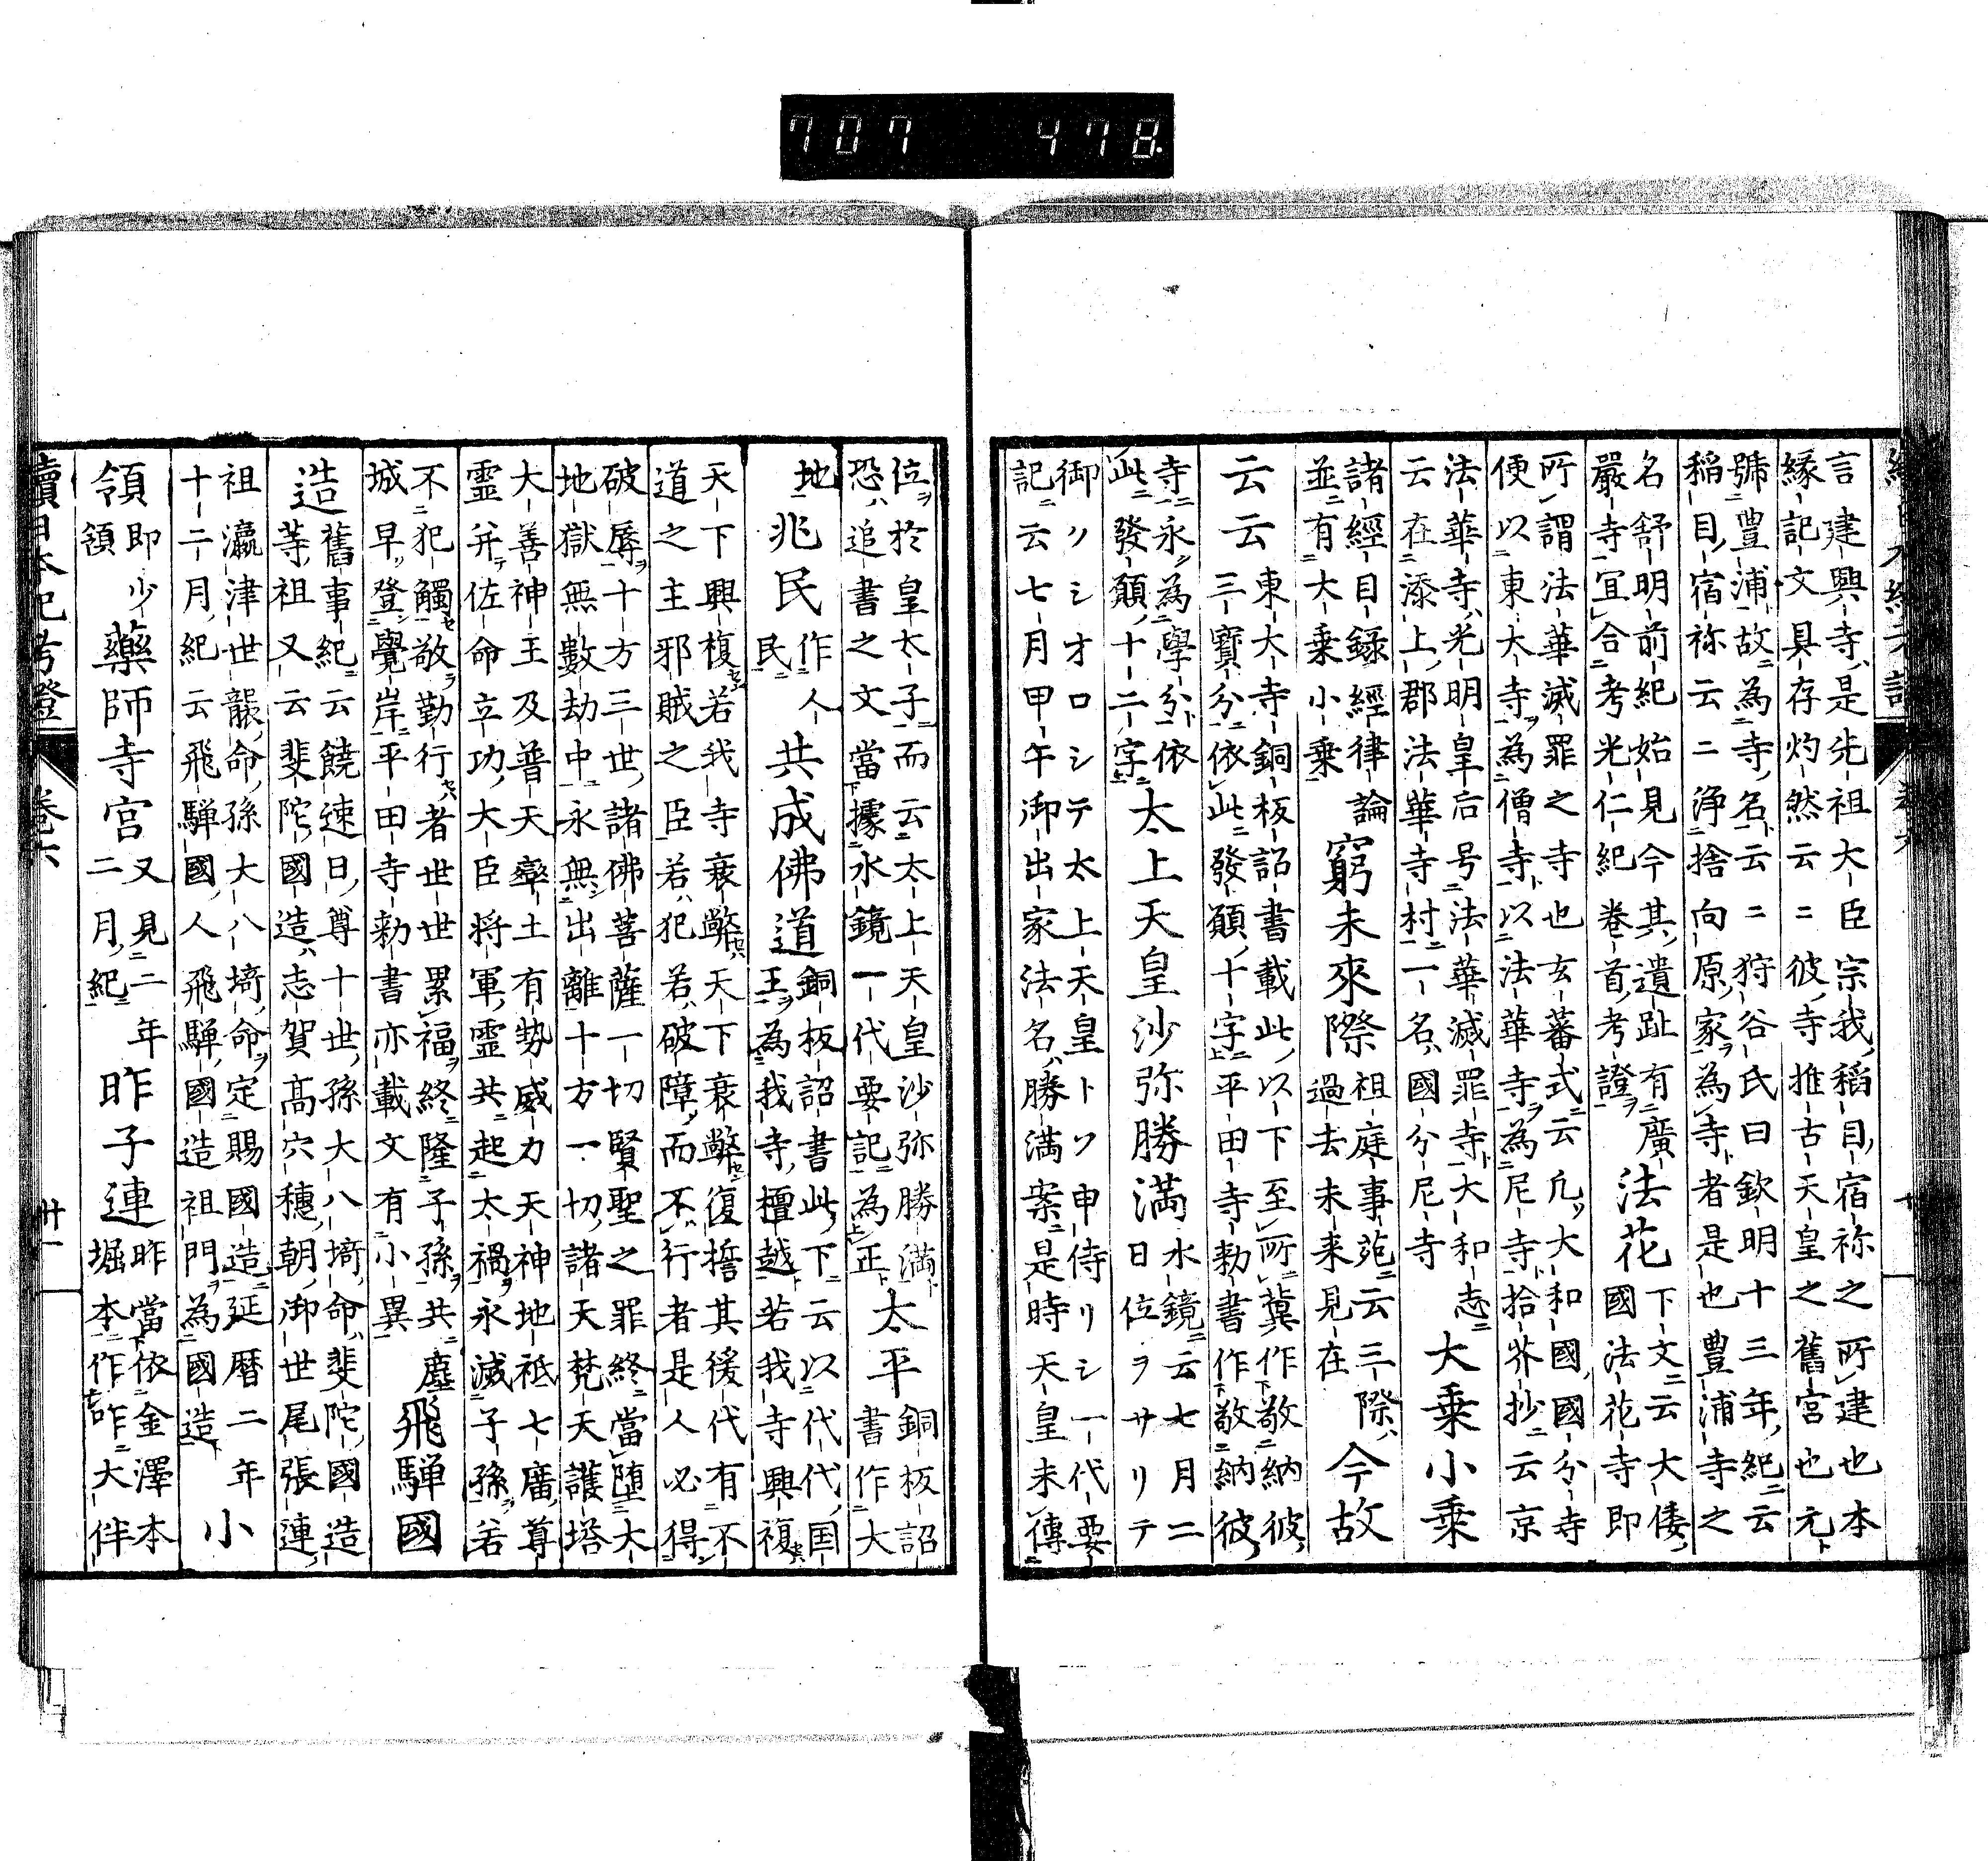 707 478
言建興寺是先祖大臣宗我稻目宿祢之所建也本
緣記文具存灼然云ニ彼寺推古天皇之舊宮也元
號豐浦故爲寺名云ニ狩谷氏曰欽明十三年紀云
稻目宿祢云ニ淨捨向原家爲寺者是也豐浦寺之
名舒明前紀始見今其遺趾有廣
嚴寺宜合考光仁紀卷首考證
法花
下文云大倭
國法花寺即
所謂法華滅罪之寺也玄蕃式云凡大和國國分寺
便以東大寺爲僧寺以法華寺爲尼寺拾芥抄云京
法華寺光明皇后号法華滅罪寺大和志
云在添上郡法華寺村一名國分尼寺
大乗小乗
諸經目録經律論
並有大乗小乗
窮未來際
祖庭事苑云三際
過去未来見在
今故
云云
東大寺銅板詔書載此以下至所冀作敬納彼
三寶分依此發願十字平田寺勅書作敬納彼
寺永爲學分依
此發願十二字
太上天皇沙弥勝満
水鏡云七月二
日位ヲサリテ
御クシオロシテ太上天皇トソ申侍リシ一代要
記云七月甲午御出家法名勝満案是時天皇未傳
位於皇太子而云太上天皇沙弥勝満
恐追書之文當據水鏡一代要記爲正
太平
銅板詔
書作大
地
兆民
作人
民
共成佛道
銅板詔書此下云以代代国
王爲我寺檀越若我寺興複
天下興複若我寺衰弊天下衰弊復誓其後代有不
道之主邪賊之臣若犯若破障而不行者是人必得
破辱十方三世諸佛菩薩一切賢聖之罪終當堕大
地獄無數劫中永無出離十方一切諸天梵天護塔
大善神王及普天率土有勢威力天神地祇七廣尊
靈并佐命立功大臣将軍靈共起太禍永滅子孫若
不犯觸敬勤行者世世累福終隆子孫共塵
城早登覺岸平田寺勅書亦載文有小異
飛驒國
造
舊事紀云饒速日尊十世孫大八埼命斐陀國造
等祖又云斐陀國造志賀髙穴穗朝御世尾張連
祖瀛津世襲命孫大八埼命定賜國造延暦二年
十二月紀云飛驒國人飛驒國造祖門爲國造
小
領
即少
領
藥師寺宮
又見二年
二月紀
昨子連
昨當依金澤本
堀本作昨大伴
續日本紀考證 卷六 廿一